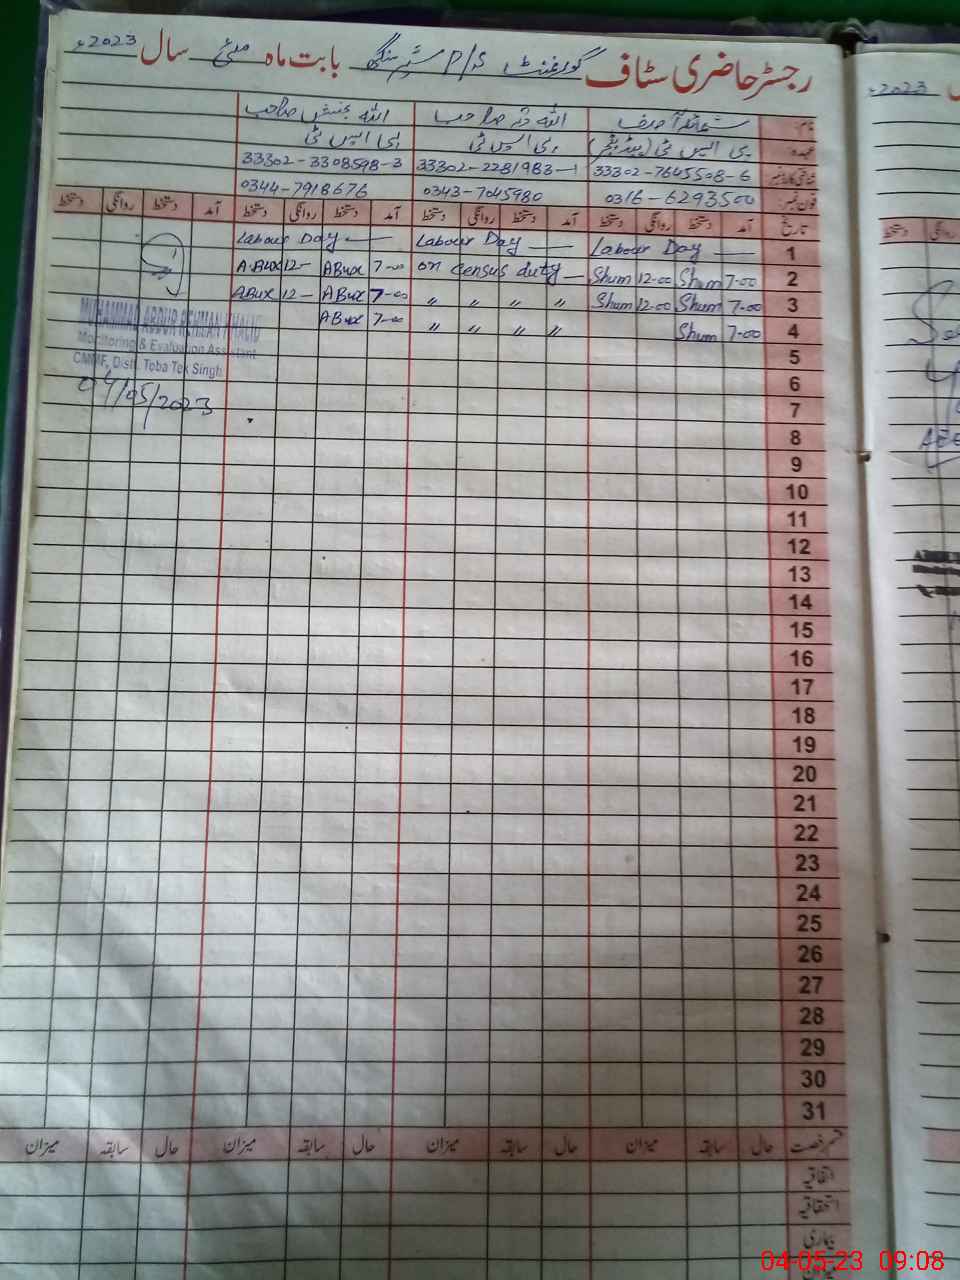 رجسٹر حاضری سٹاف گورنمنٹ P/S بابت ماہ مئی سال 2023ء
نام: اللہ دتہ صاحب اللہ بخش صاحب
عہدہ: پی ایس ٹی (ہیڈ ٹیچر) پی ایس ٹی پی ایس ٹی
شناختی کارڈ نمبر 33302-7645508-6 33302-2281983-1 33302-3308598-3
فون نمبر: 0316-6293500 0343-7045980 0344-7918676
تاریخ آمد دستخط روانگی دستخط آمد دستخط روانگی دستخط آمد دستخط روانگی دستخط آمد دستخط روانگی دستخط
1 Labour Day Labour Day Labour Day
2 7-00 Shum 12-00 Shum on census duty 7-00 ABux 12- A.Bux
3 7-00 Shum 12-00 Shum " " " " 7-00 ABux 12- ABux
4 7-00 Shum " " " " 7-00 ABux
MUHAMMAD ABDUR REHMAN KHALID
Monitoring & Evaluation Assistant
CMMF, Distt. Toba Tek Singh
04/05/2023
5
6
7
8
9
10
11
12
13
14
15
16
17
18
19
20
21
22
23
24
25
26
27
28
29
30
31
قسم رخصت حال سابقہ میزان حال سابقہ میزان حال سابقہ میزان حال سابقہ میزان
اتفاقیہ
استحقاقیہ
بیماری
2023ء
دستخط روانگی
04-05-23 09:08